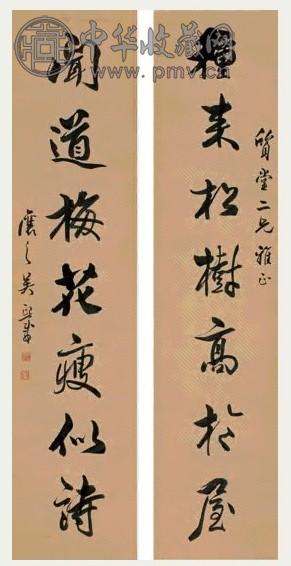 中华收藏网
www.pmv.cn
質堂二兄雅正
種来松樹高於屋
聞道梅花瘦似詩
讓之吳熙載